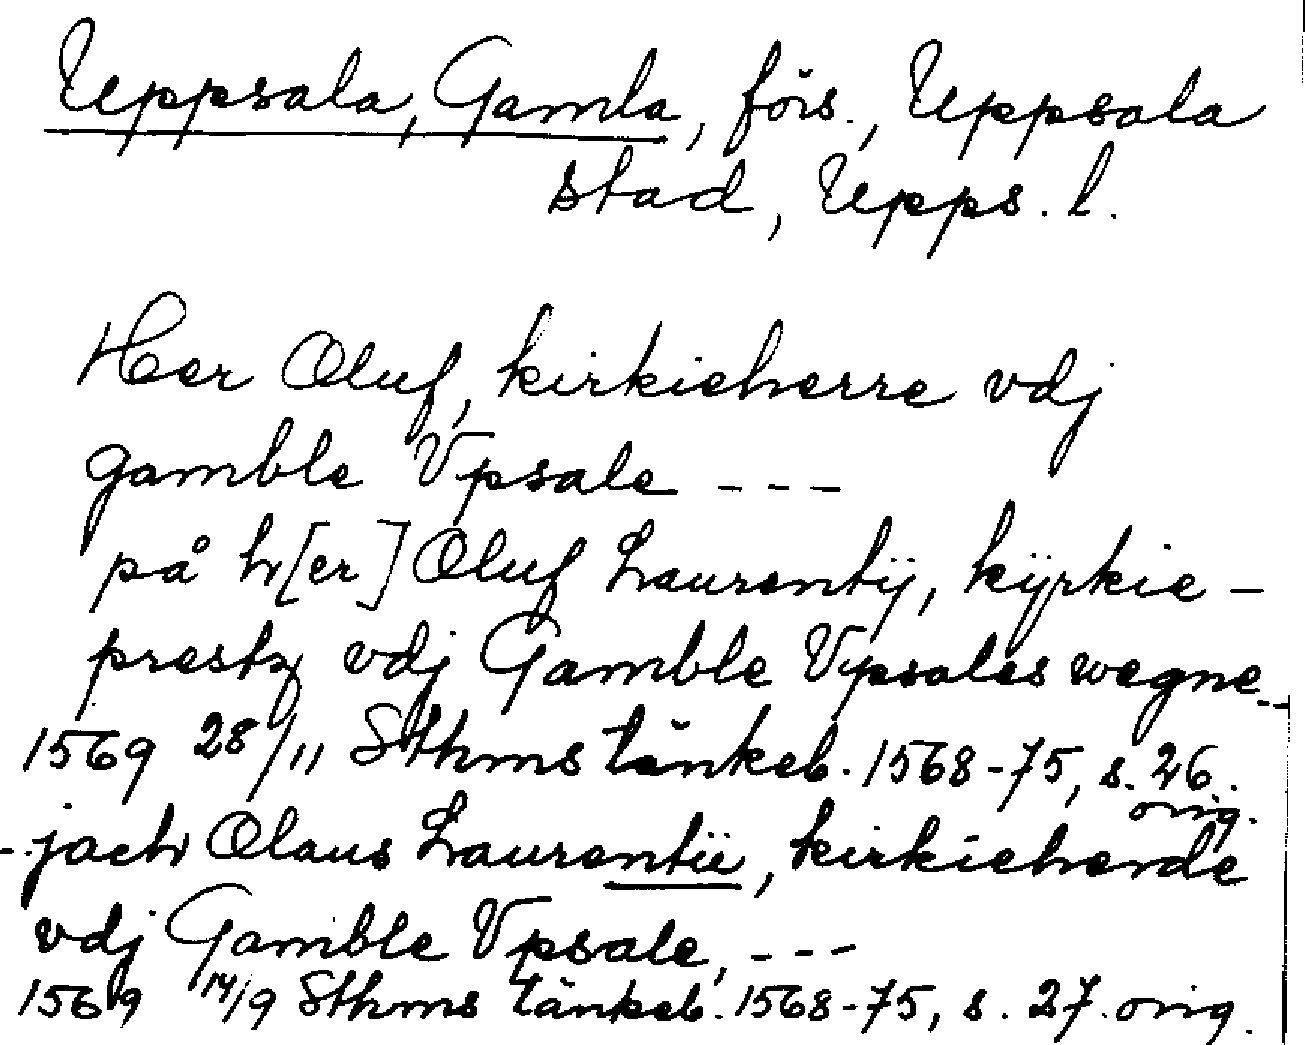 Uppsala, Gamla, förs., Uppsala
stad, Upps. l.
Her Oluf, kirkieherre vdj
gamble Vpsale ---
på h[er] Oluf Laurentij, kÿrkie-
prestz vdj Gamble Vpsales wegne --
1569 28/11 Sthms tänkeb. 1568-75, s. 26.
orig.
- jach Olaus Laurentii, kirkieherde
vdj Gamble Vpsale, ---
1569 14/9 Sthms tänkeb. 1568-75, s. 27. orig.